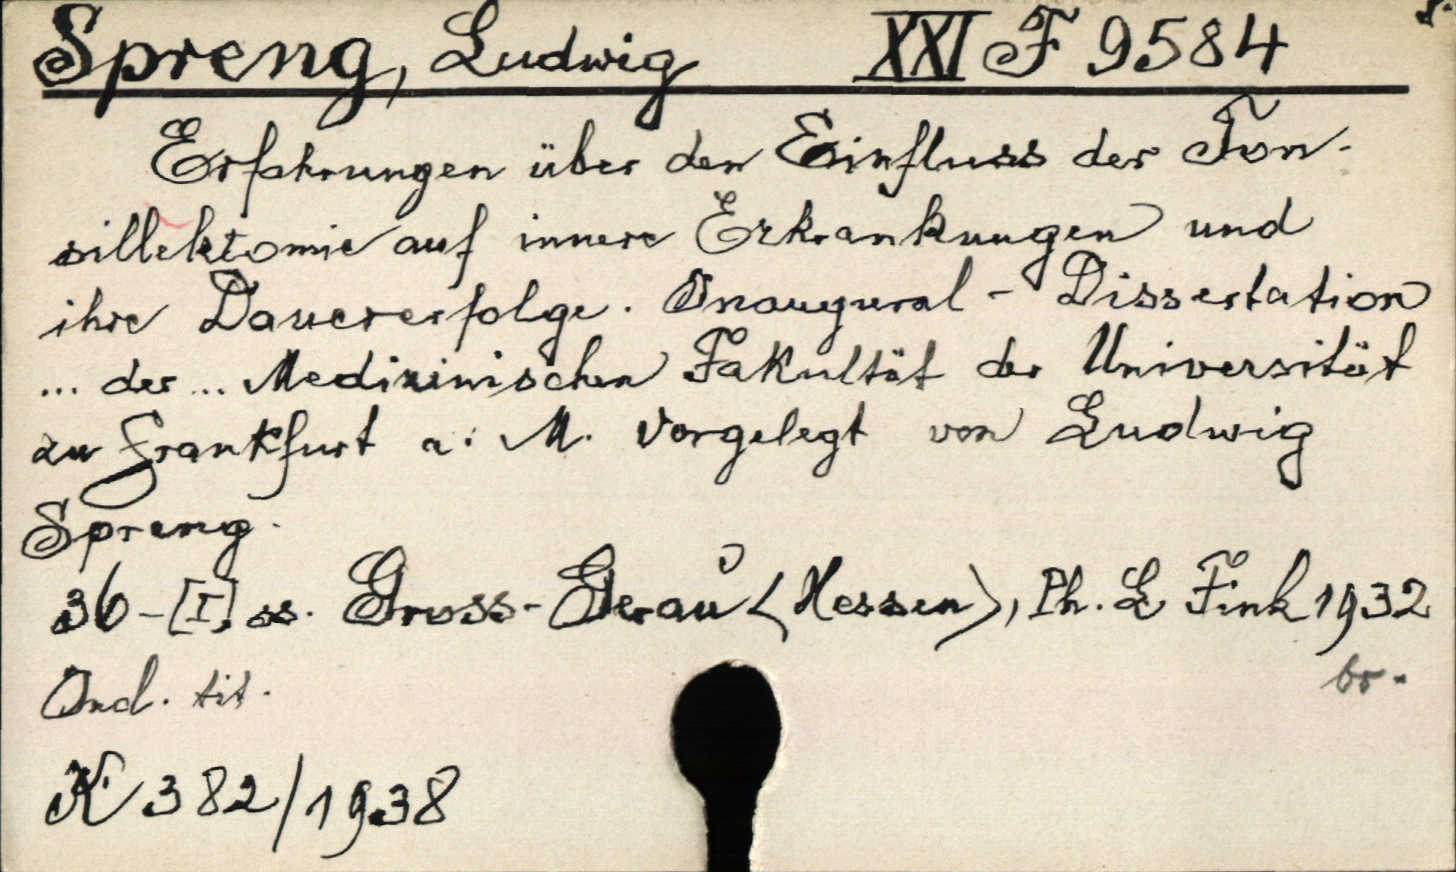 Spreng, Ludwig XXI F 9584
Erfahrungen über den Einfluss der Ton-
sillektomie auf innere Erkrankungen und
ihre Dauererfolge. Inaugural - Dissertation
... der ... Medizinischen Fakultät der Universität
zu Frankfurt a. M. vorgelegt von Ludwig
Spreng.
36-[I] ss. Gross-Gerau <Hessen>, Ph. L Fink 1932
br.
Ind. tit.
K 382/1938